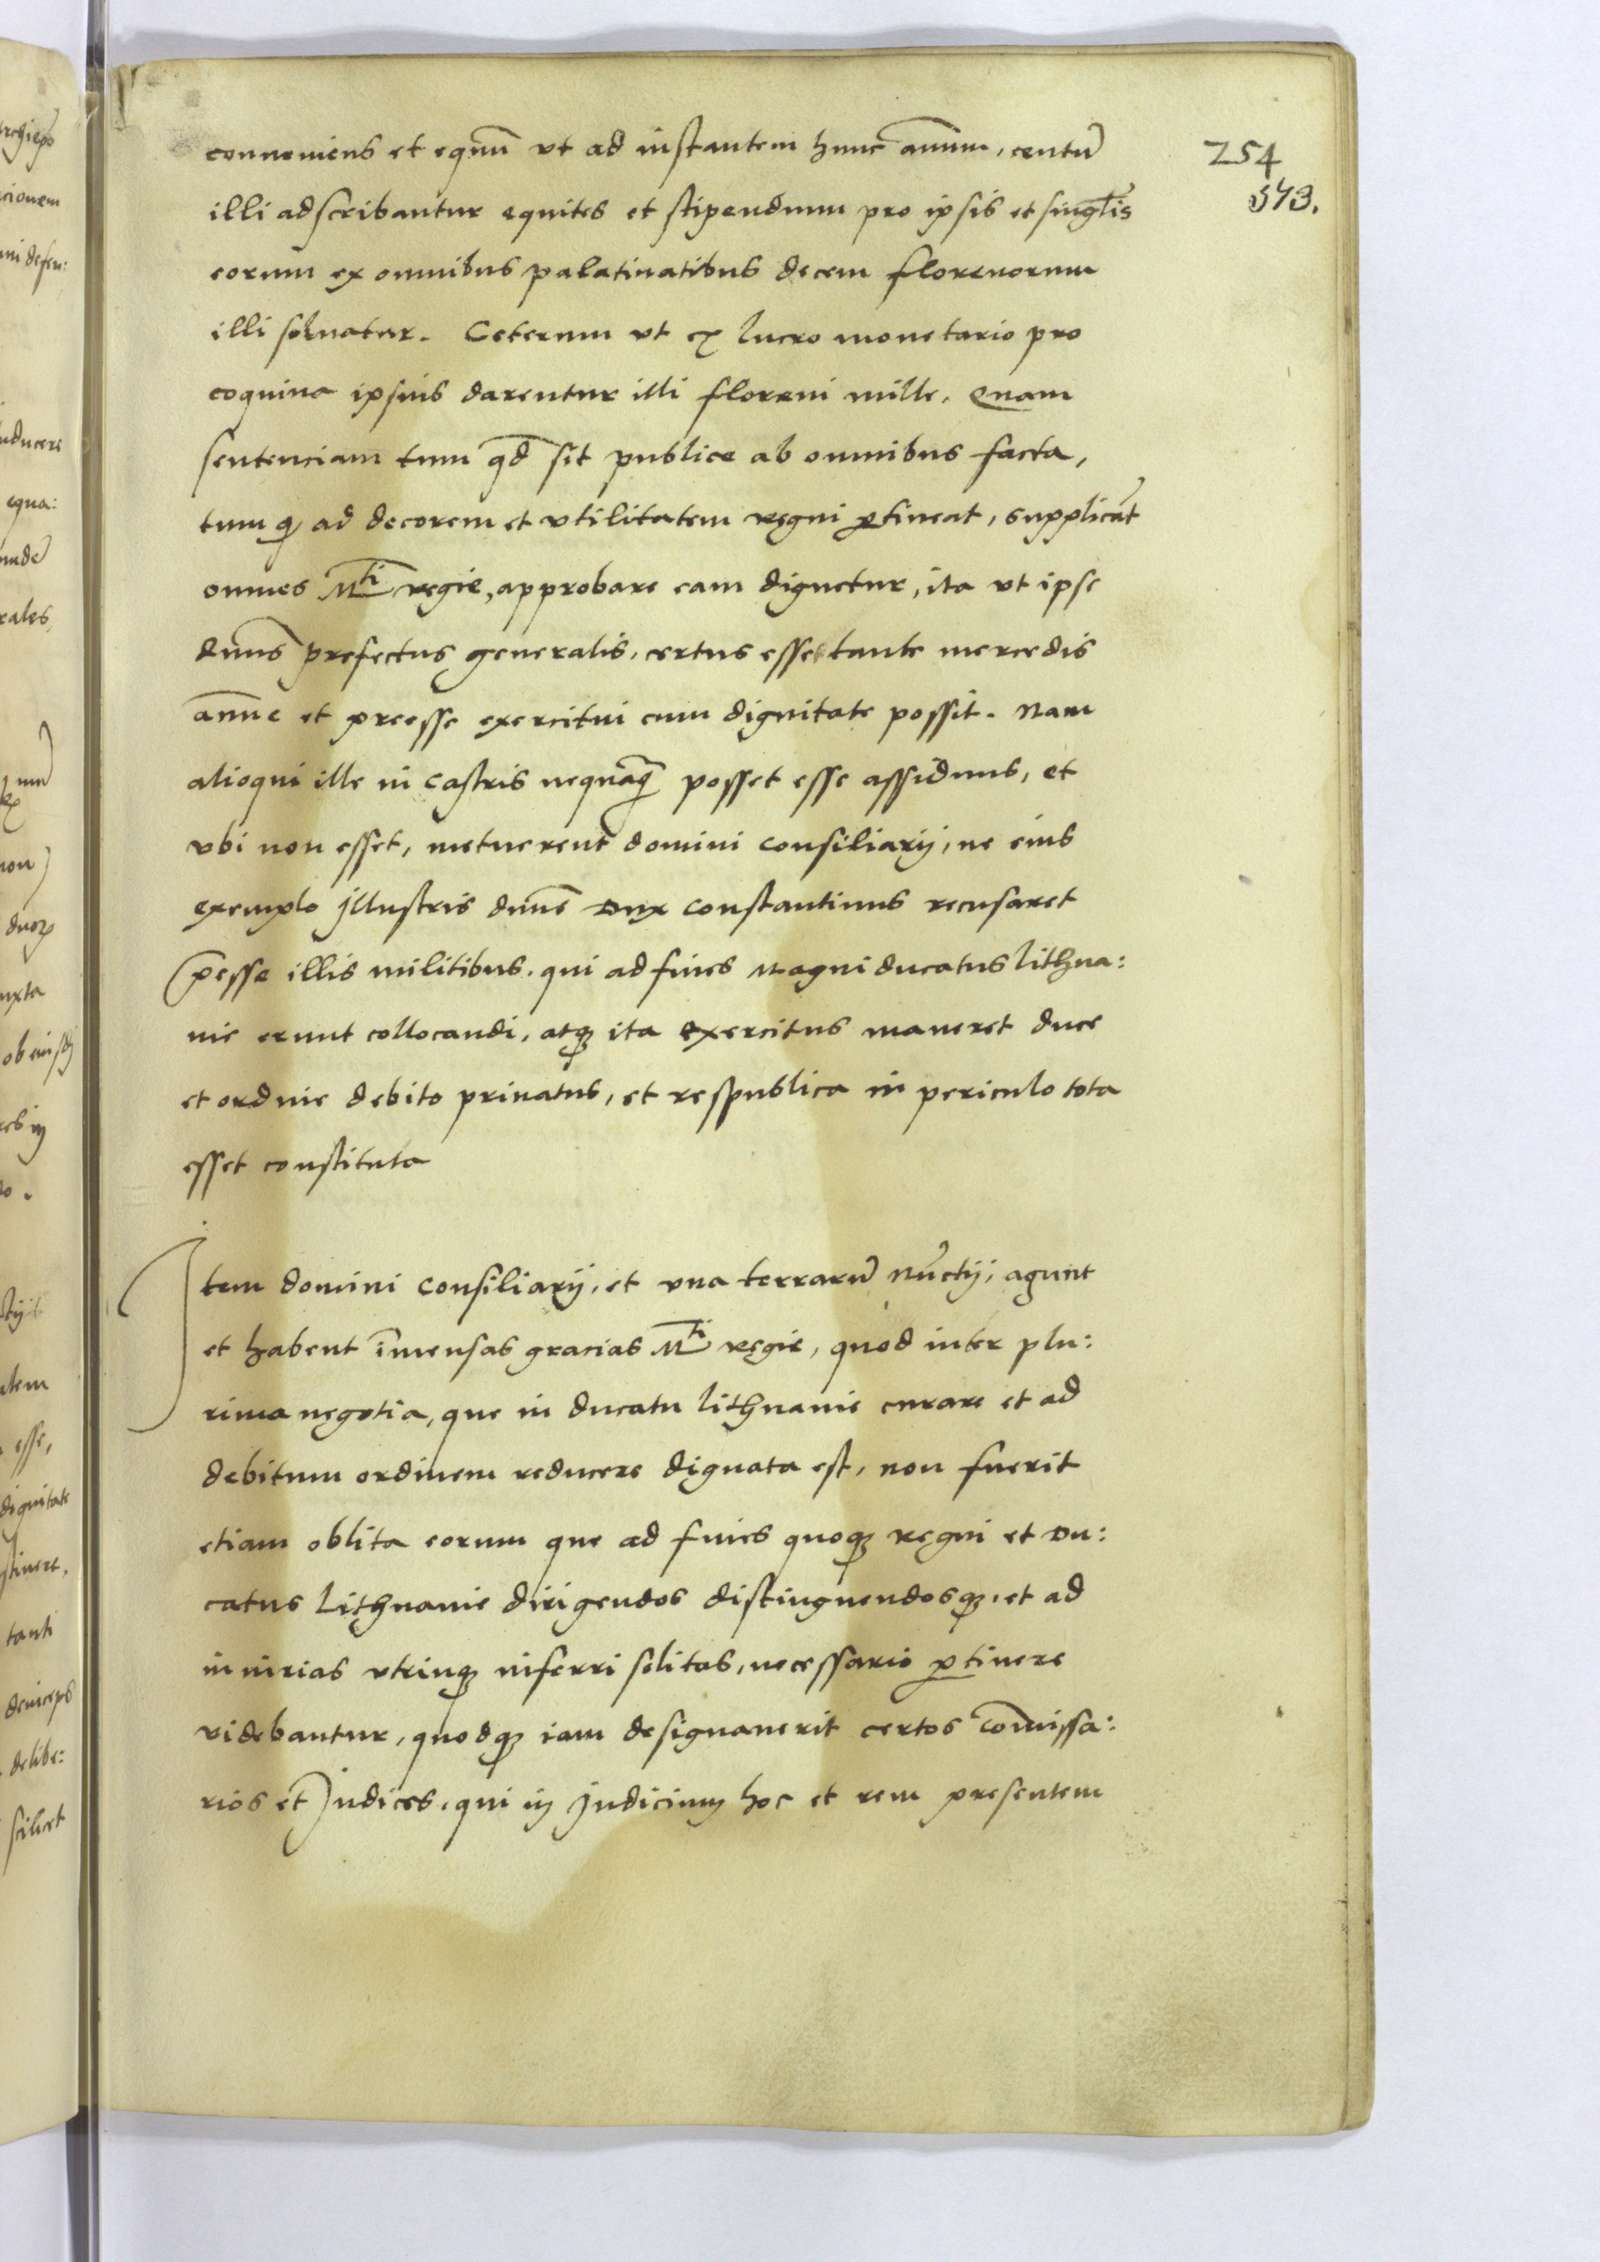 conueniens et equũ ut ad instantem hunc annum, centũ
illi adscribantur equites et stipendium pro ipsis et singlis
eorum ex omnibus palatinatibus decem florenorum
illi soluatur. Ceterum ut ex lucro monetario pro
coquina ipsius darentur illi floreni mille, Quam
sentenciam tum qd̄ sit publice ab omnibus facta,
tum q̨ ad decorem et vtilitatem regni ꝑtineat, supplicãt
omnes M^ti regie, approbare eam dignetur, ita vt ipse
dñus prefectus generalis, certus esset tante mercedis
annue et preesse exercitui cum dignitate possit. Nam
alioqui ille in castris nequaq̃ posset esse assiduus, et
vbi non esset, metuerent domini consiliarij, ne eius
exemplo Jllustris dñus Dux Constantinus recusaret
p̄esse illis militibus, qui ad fines Magni ducatus Lithua:
nie erunt collocandi, atq; ita exercitus maneret duce
et ordine debito priuatus, et respublica in periculo tota
esset constituta
Jtem domini Consiliarij, et vna terrarũ Nũctij, agunt
et habent im̄ensas gracias M^ti regie, quod inter plu:
rima negotia, que in ducatu Lithuanie curare et ad
debitum ordinem reducere dignata est, non fuerit
etiam oblita eorum que ad fines quoq; regni et Du:
catus Lithuanie dirigendos distinguendosq;, et ad
iniurias vtrinq; inferri solitas, necessario ꝑtinere
videbantur, quodq; iam designauerit certos com̄issa:
rios et Judices, qui in Judicium hoc et rem presentem
254
543.